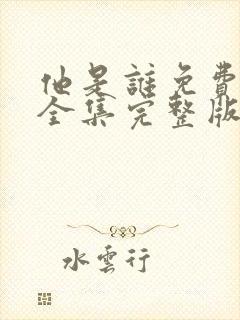 他是誰免費
全集完整版
水雲行